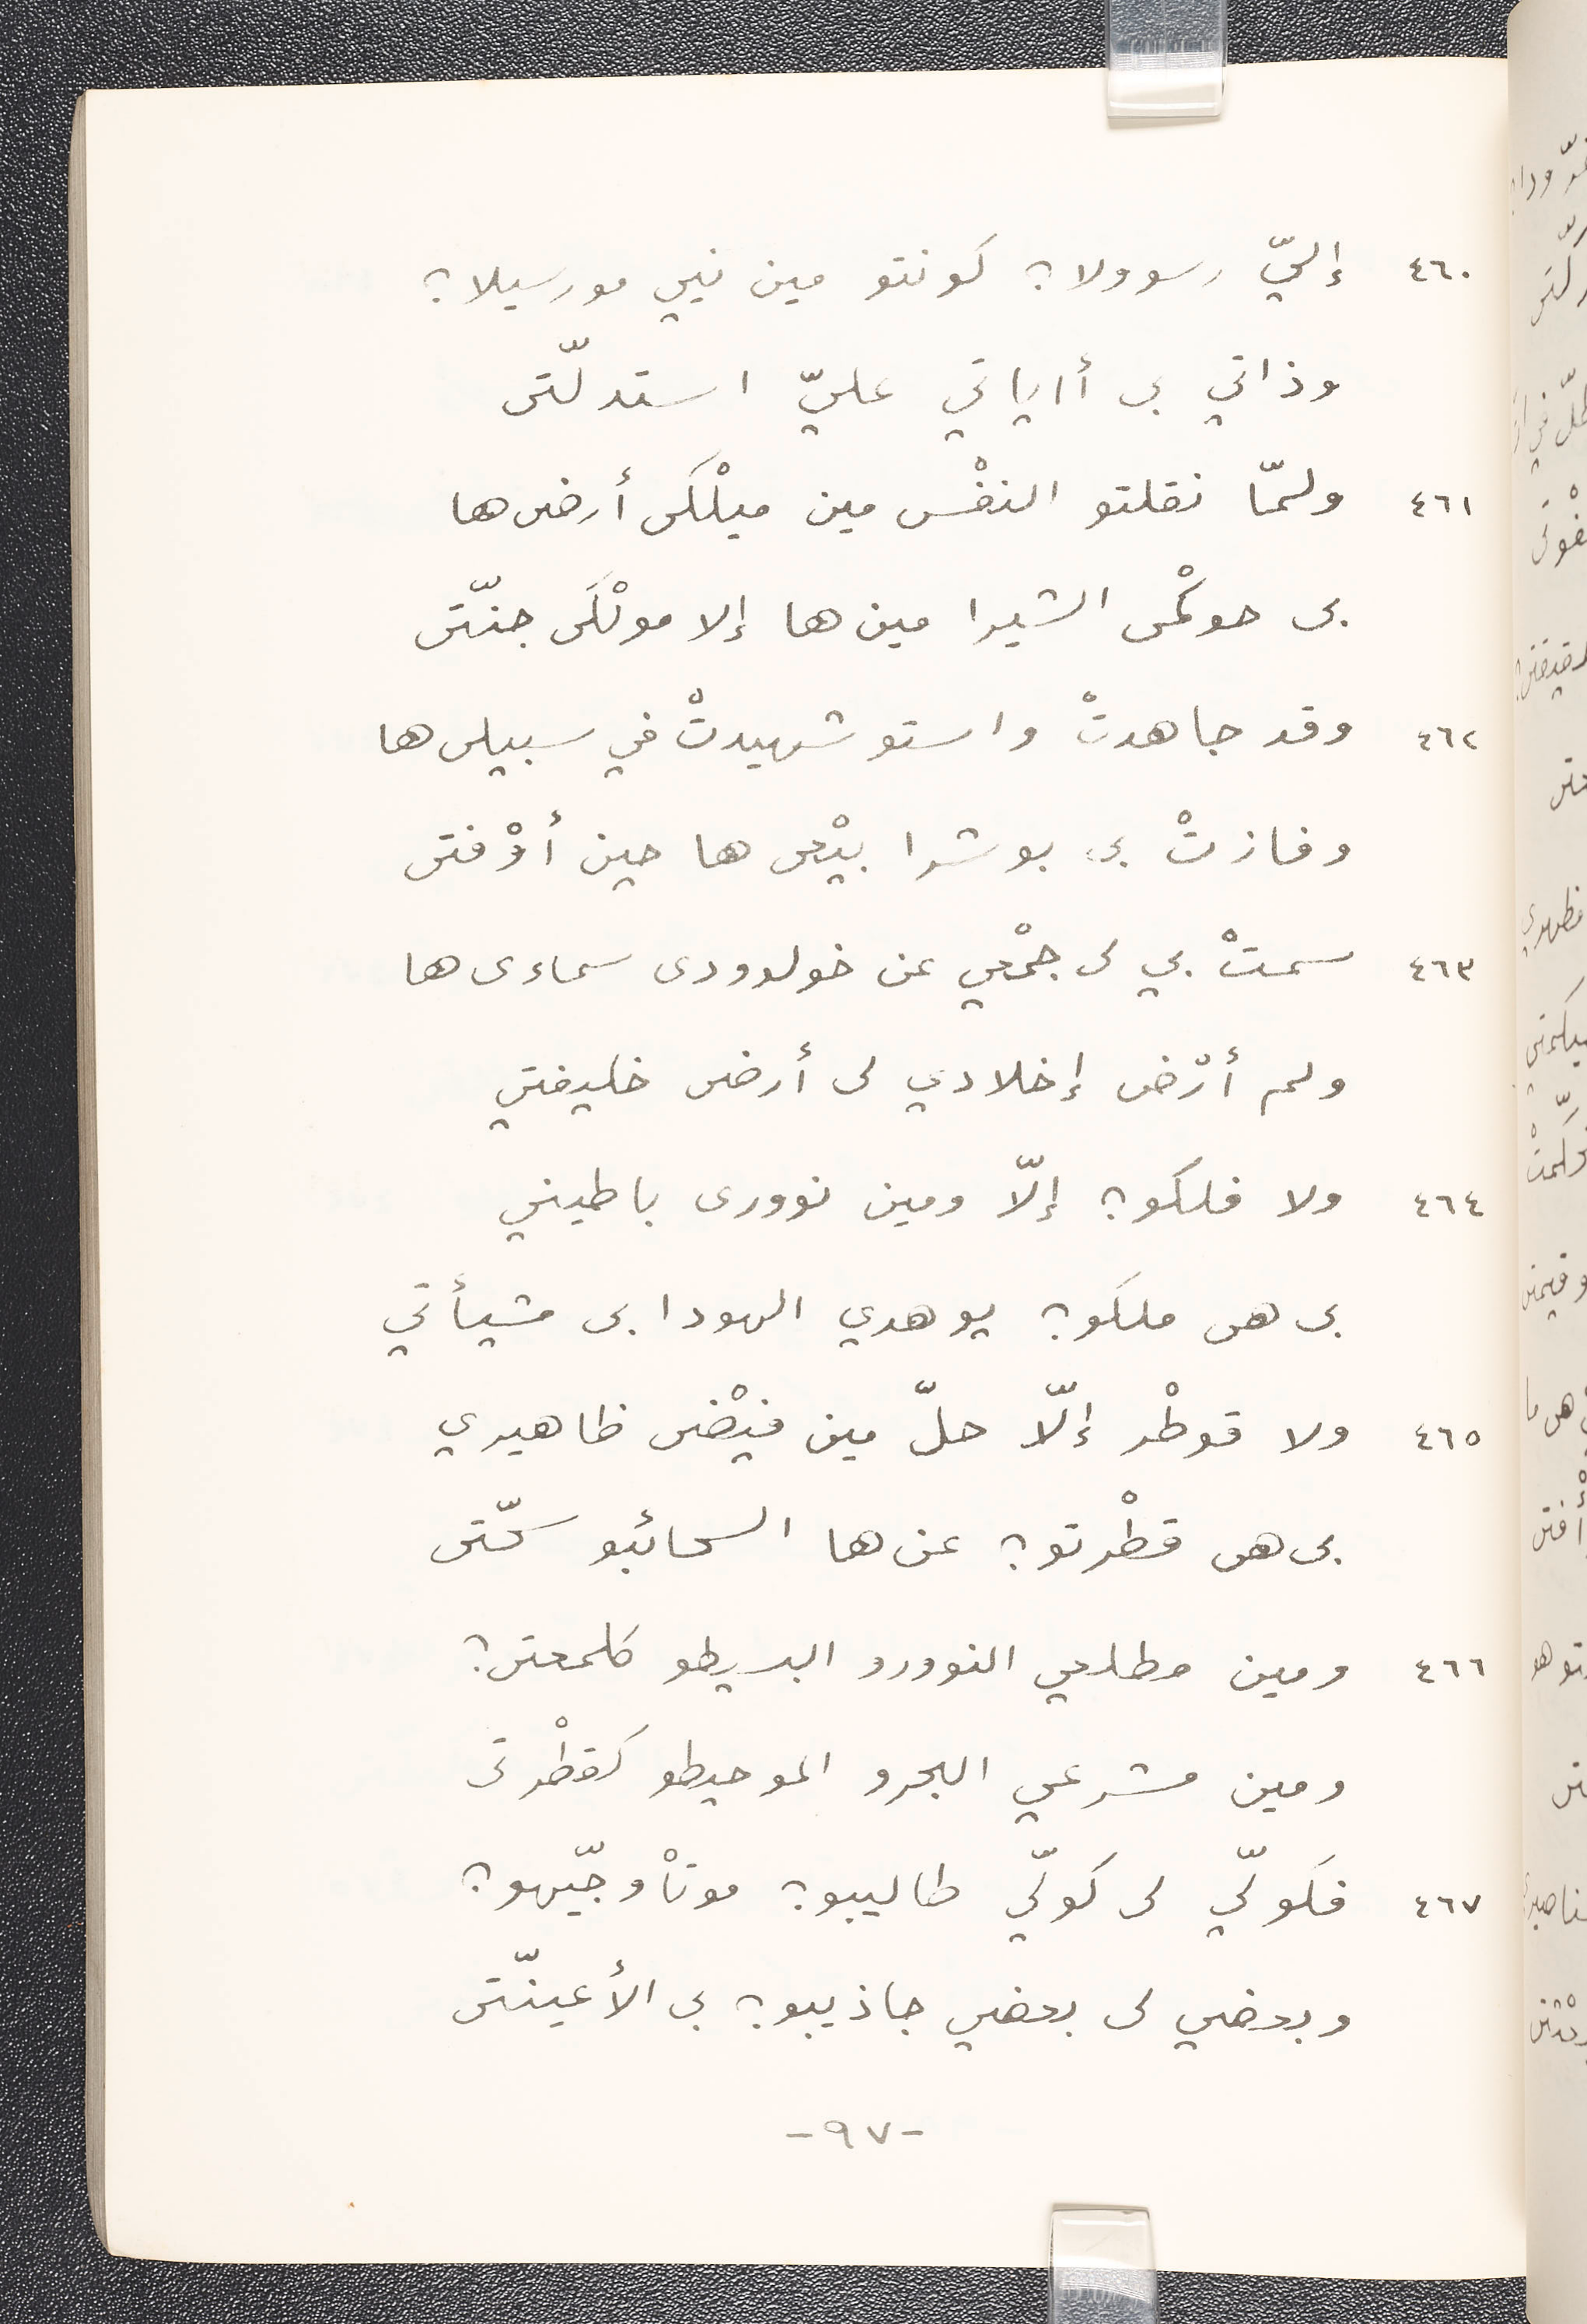 ٤٦٠ إليّ رسوولا؟ كونتو مين ني مورسيلا؟
وذاتي بى أاياتي عليّ استدلّتى
٤٦١ ولمّا نقلتو النفْس مين ميلْكى أرضى ها
بى حوكْمى الشيرا مين ها إلا مولْكى جنّتى
٤٦٢ وقد جاهدتْ واستوشهيدتْ في سبيلى ها
وفازتْ بى بوشرا بيْعى ها حين أوْفتى
٤٦٣ سمتْ بي لى جمْعي عن خولوودى سماءى ها
ولم أرْض إخلادي لى أرضى خليفتي
٤٦٤ ولا فلكو؟ إلّا ومين نوورى باطيني
بى هى ملكو؟ يوهدي الهودا بى مشيأتي
٤٦٥ ولا قوطْر إلّا حلّ مين فيْضى ظاهيري
بى هى قطْرتو؟ عن ها السحائبو سحّتى
٤٦٦ ومين مطلعي النوورو البسيطو كلمعتى؟
ومين مشرعي البحرو الموحيطو كقطْرتى
٤٦٧ فكولّي لى كولّي طاليبو؟ موتاْوجّيهو؟
وبعضي لى بعضي جاذيبو؟ بى الأعينّتى
-٩٧-